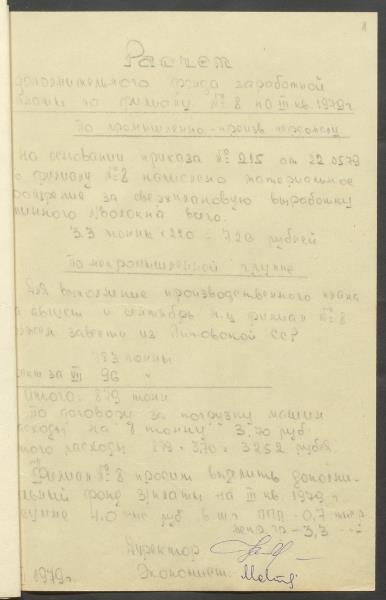 Расчет
дополнительного фонда заработной
платы по филиалу № 8 на III кв. 1979г
По промышленно-произв. персоналу
на основании приказа № 215 от 22.05.79
филиалу № 8 начислено материальное
за сверхплановую выработку
волокна всего:
3.3 тонны × 220 = 720 рублей
По непромышленной группе
Для выполнение производственного плана
август и сентябрь м-ц филиал № 8
завести из Литовской ССР
783 тонны
за VII 96 "
Итого: 879 тонн
По договору за погрузку машин
расходы на 1 тонну 3,70 руб.
расходы 879 × 3.70 = 3252 рубля
Филиал № 8 просит выделить дополни-
тельный фонд з/платы на III кв. 1979 г.
сумме 4,0 тыс руб в т.ч. ППП - 0,7 тыс.р
- 3,3
Директор
Экономист:
1979г.